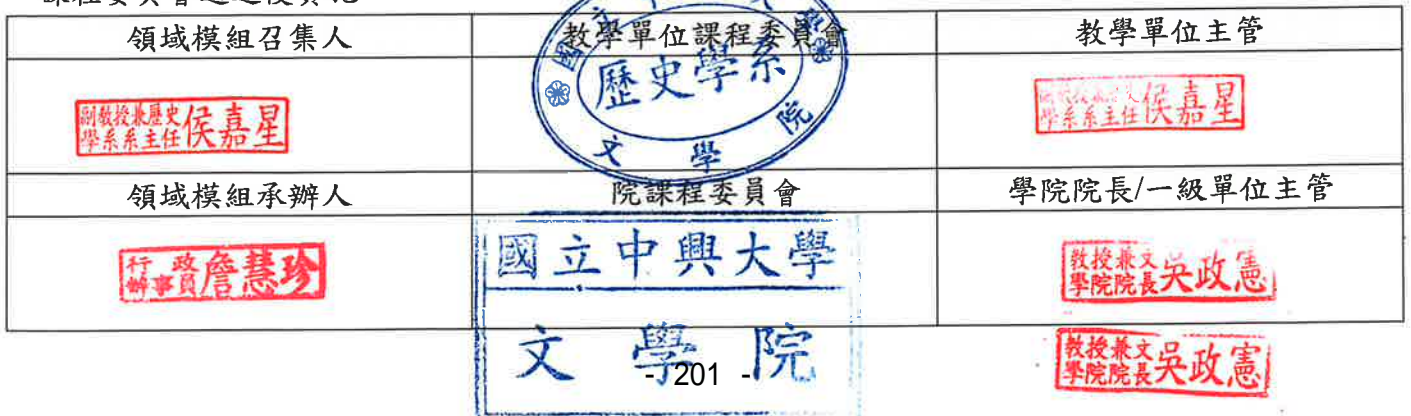 領域模組召集人 教學單位課程委員會 教學單位主管
副教授兼歷史
學系系主任 侯嘉星
國立中興大學
歷史學系
文學院
學系系主任 侯嘉星
領域模組承辦人 院課程委員會 學院院長/一級單位主管
行政
辦事員 詹慧珍
國立中興大學
文學院
教授兼文
學院院長 吳政憲
- 201 -
教授兼文
學院院長 吳政憲